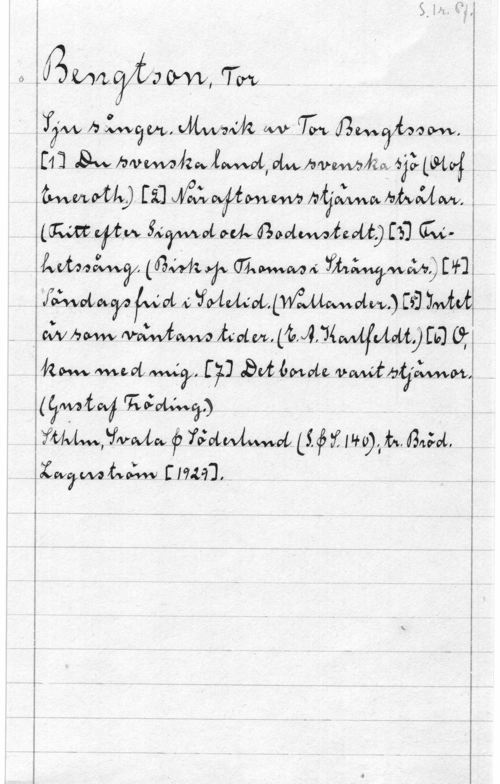 S. 1r. Pf.
Bengtson, Tor
Sju sånger. Musik av Tor Bengtsson.
[1] Du svenska land, du svenska sjö (Olof
Eneroth.) [2] När aftonens stjärna strålar.
(Fritt efter Sigurd och Bodenstedt.) [3] Fri-
hetssång. (Biskop Thomas i Strängnäs.) [4]
Söndagsfrid i Solelid. (Wallander.) [5] Intet
är som väntans tider. (E. A. Karlfeldt.) [6] O,
kom med mig. [7] Det borde varit stjärnor.
(Gustaf Fröding.)
Sthlm, Svala & Söderlund (S. & S. 140), tr. Bröd.
Lagerström [1929].